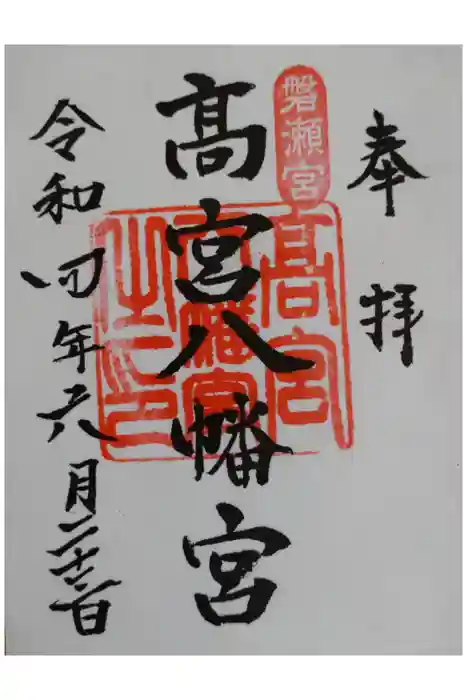 奉拝
磐瀬宮
髙宮八幡宮
高宮
八幡宮
之印
令和四年六月二十六日